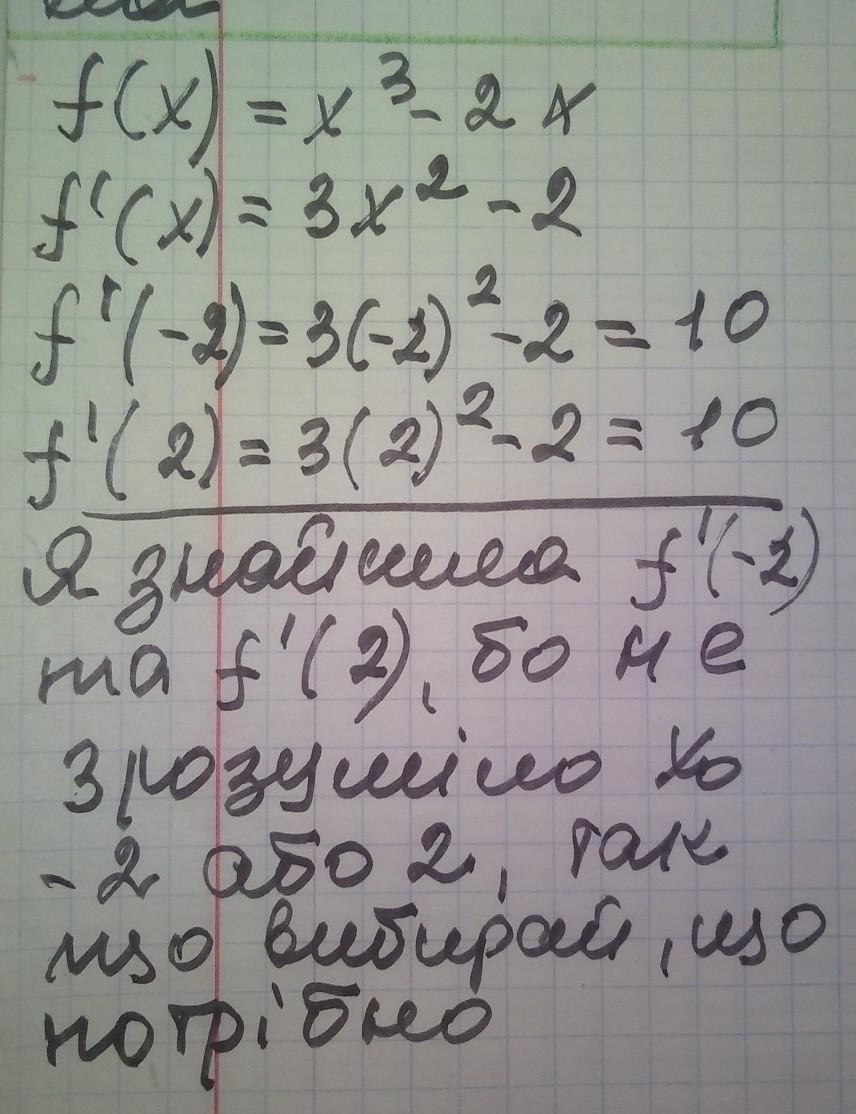 f(x) = x³ - 2x
f'(x) = 3x² - 2
f'(-2) = 3(-2)² - 2 = 10
f'(2) = 3(2)² - 2 = 10
Я знайшла f'(-2)
та f'(2), бо не
зрозуміло x₀
-2 або 2, так
що вибирай, що
потрібно